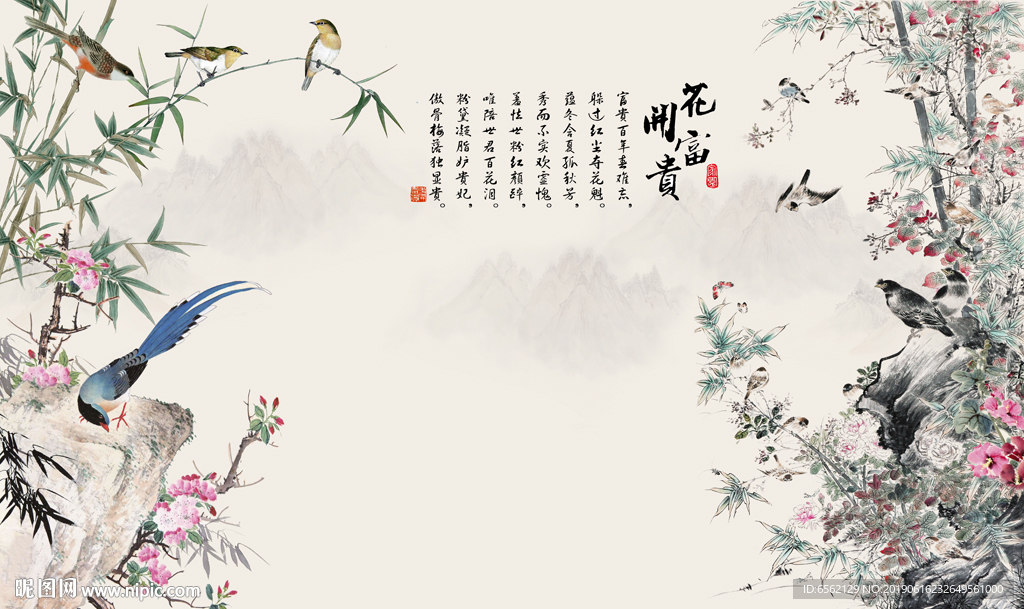 花開富貴
富贵百年春难忘，
躲过红尘夺花魁。
蕴冬含夏孤秋芳，
秀而不实欢灵愧。
羞怯世粉红颜醉，
唯陪世君百花泪。
粉黛凝脂妒贵妃，
傲骨梅落独显贵。
昵图网 www.nipic.com
ID:6562129 NO:20190616232649561000